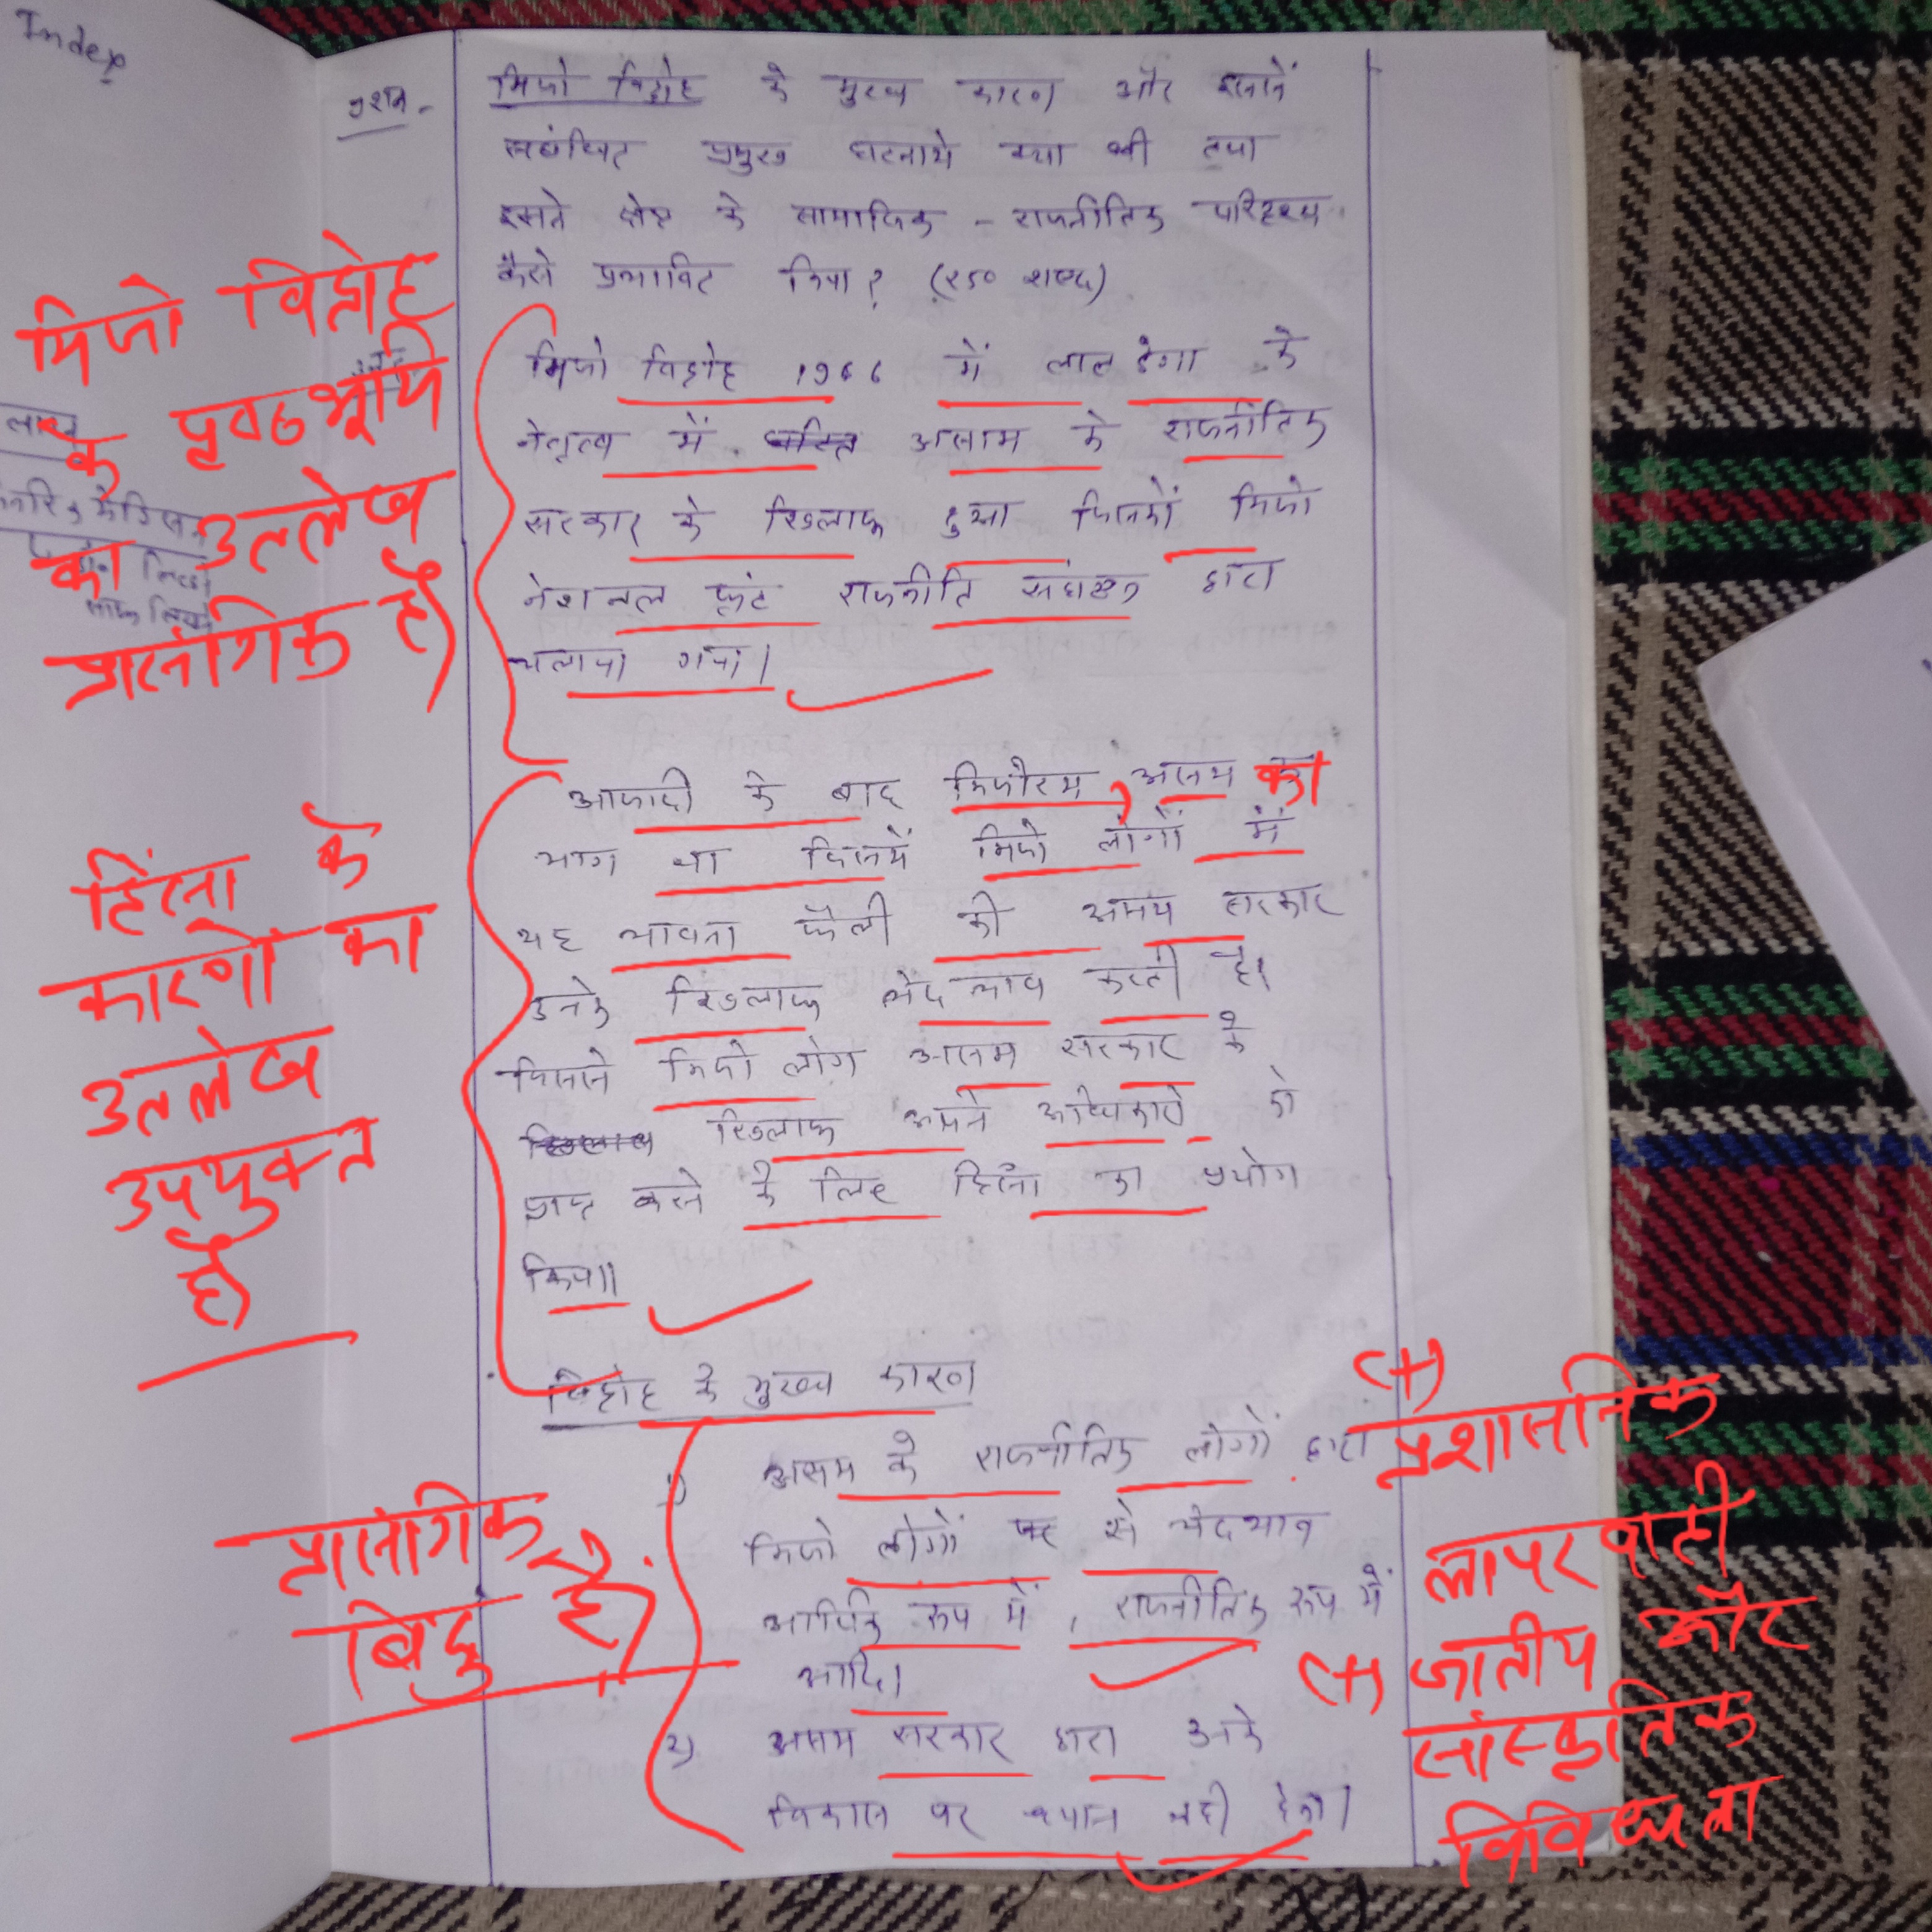 Index
प्रश्न -
मिजो विद्रोह के मुख्य कारण और इससे
संबंधित प्रमुख घटनाये क्या थी तथा
इसने क्षेत्र के सामाजिक - राजनीतिक परिदृश्य
कैसे प्रभावित किया? (250 शब्द)
मिजो विद्रोह 1966 में लाल डेगा के
नेतृत्व में असाम के राजनीतिक
सरकार के खिलाफ हुआ जिसको मिजो
नेशनल फ्रंट राजनीति संघठन द्वारा
चलाया गया।
आजादी के बाद मिजोरम, असम का
भाग था जिसमें मिजो लोगों में
यह भावना फैली की असम सरकार
उनके खिलाफ भेदभाव करती है।
जिससे मिजो लोग असम सरकार के
खिलाफ अपने अधिकारों को
प्राप्त करने के लिए हिंसा का प्रयोग
किया।
विद्रोह के मुख्य कारण
1) असम के राजनीतिक लोगों द्वारा
मिजो लोगों से भेदभाव
आर्थिक रूप में, राजनीतिक रूप में
आदि।
2) असम सरकार द्वारा उनके
विकास पर ध्यान नही देना।
मिजो विद्रोह
के पृष्ठभूमि
का उल्लेख
प्रासंगिक है।
हिंसा के
कारणों का
उल्लेख
उपयुक्त
है।
प्रासंगिक
बिंदु है।
(+)
प्रशासनिक
लापरवाही
(+) जातीय और
सांस्कृतिक
विविधता